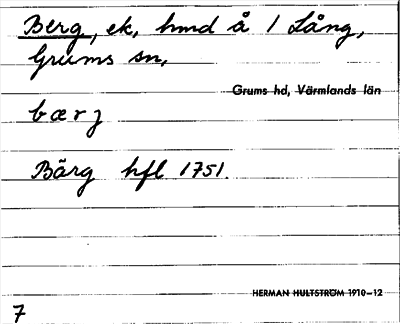 Berg, ek, hmd å 1 Lång,
Grums sn,
Grums hd, Värmlands län
bærj
Bärg hfl 1751.
HERMAN HULTSTRÖM 1910–12
7